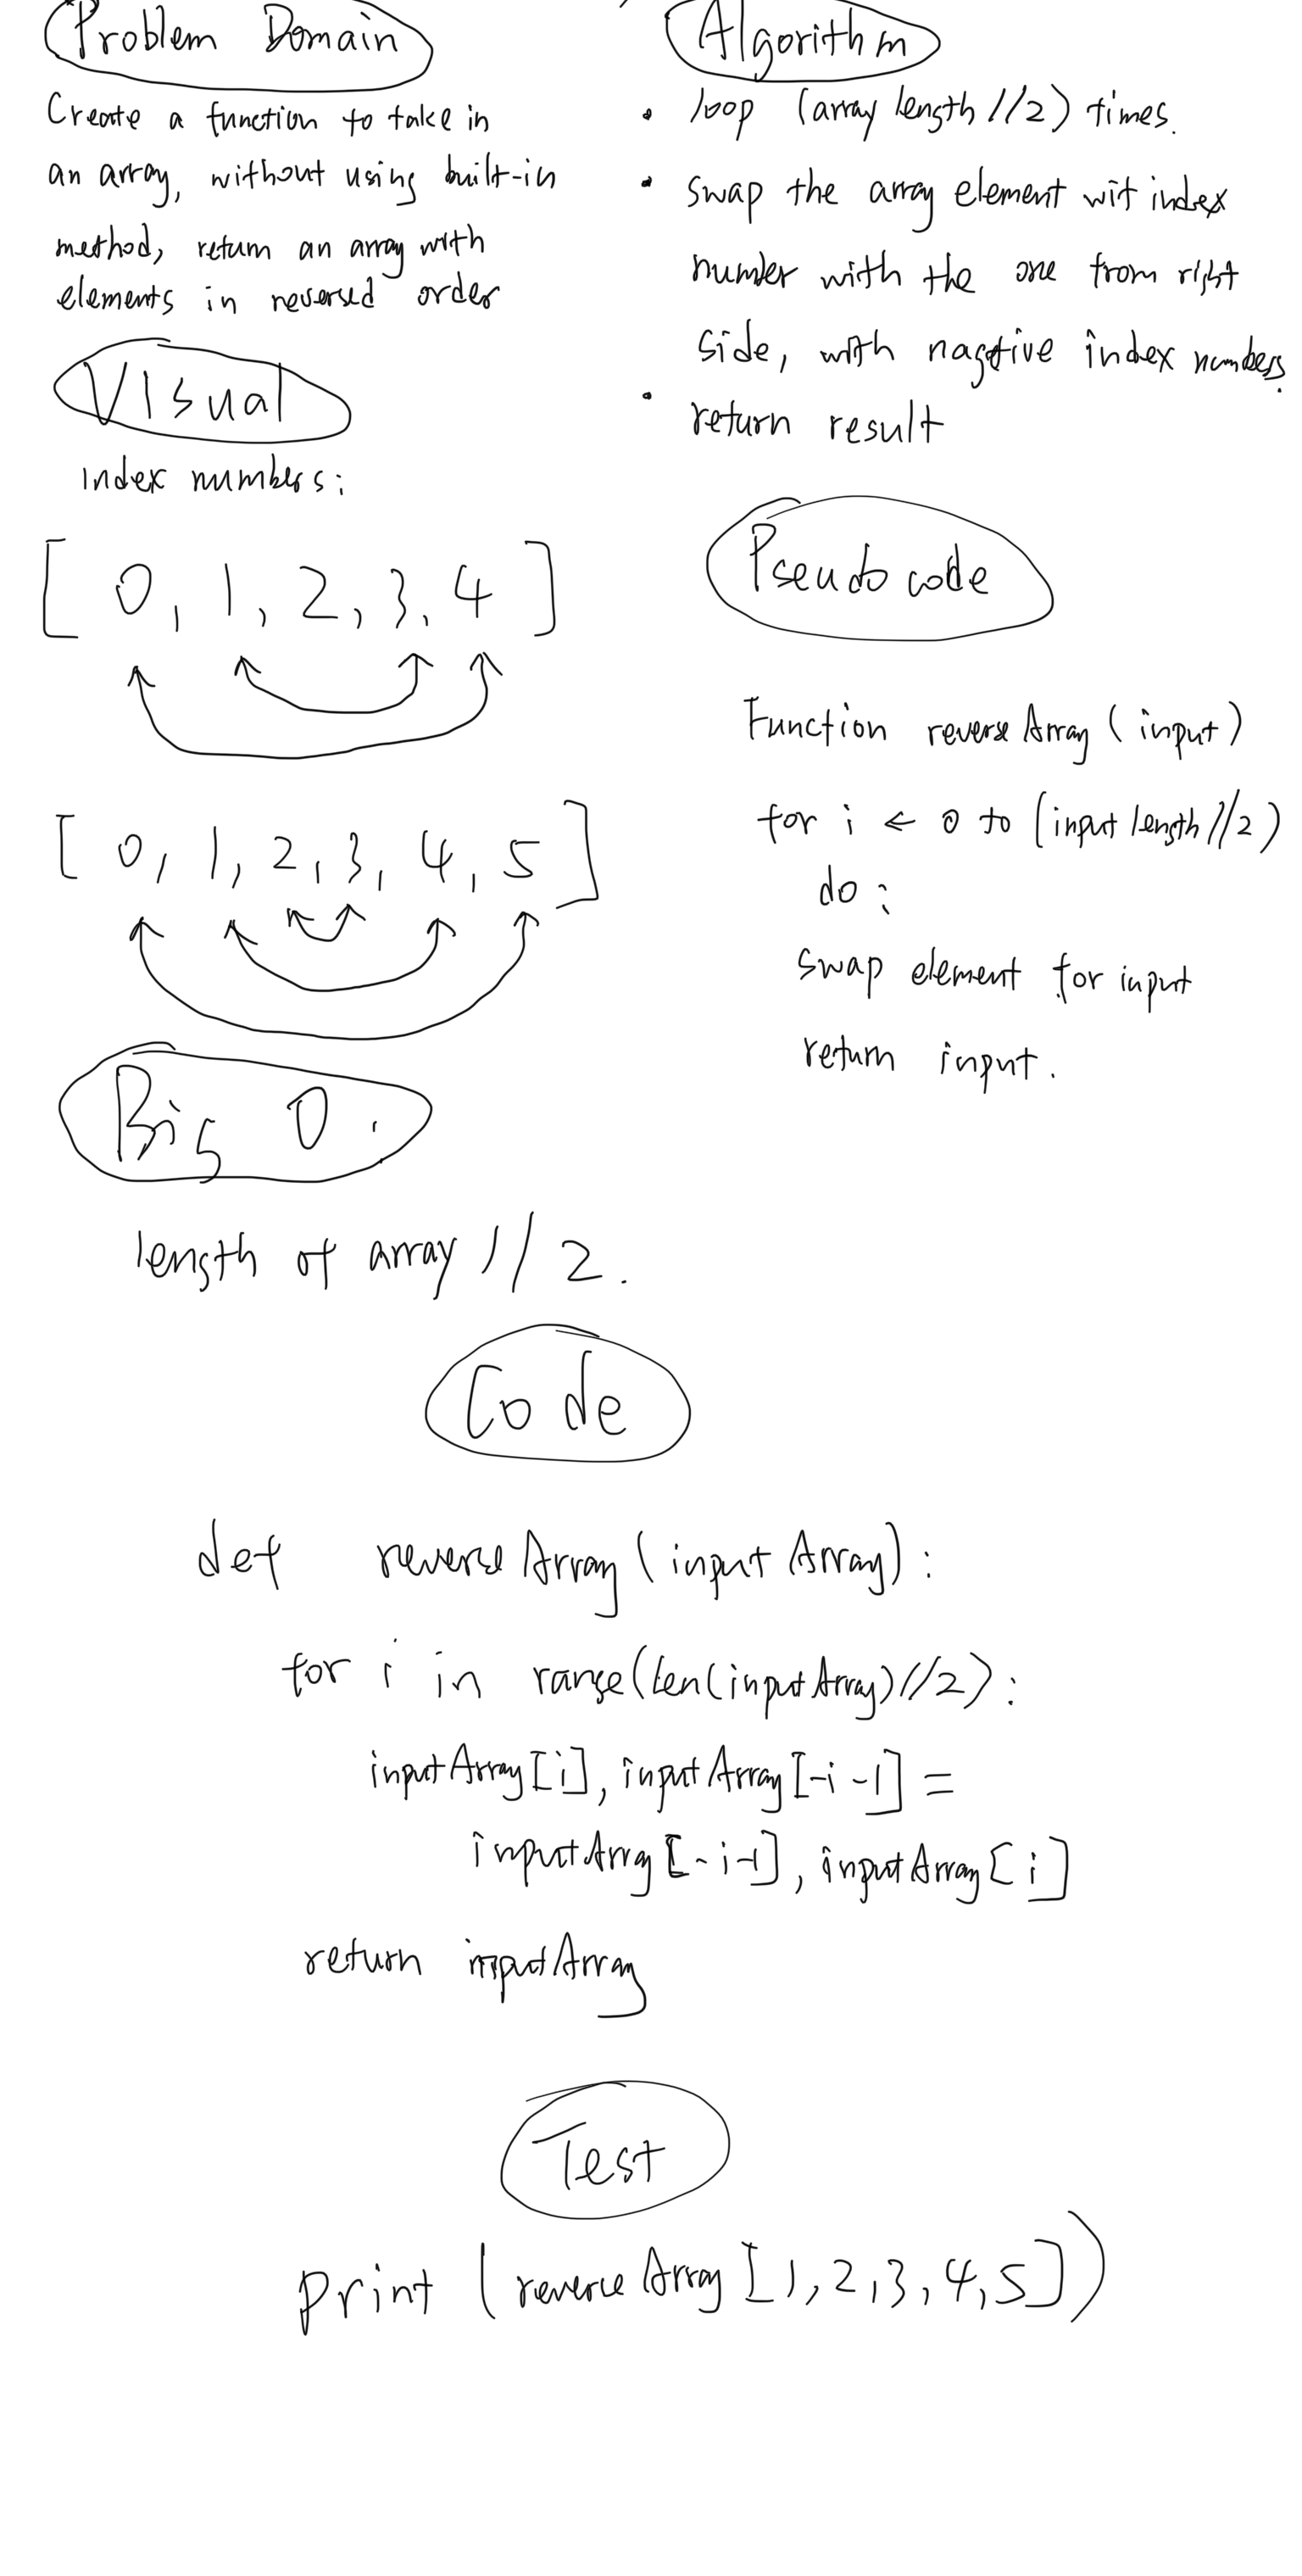 Problem Domain
Create a function to take in
an array, without using built-in
method, return an array with
elements in reversed order
Visual
Index numbers:
[ 0, 1, 2, 3, 4 ]
[ 0, 1, 2, 3, 4, 5 ]
Big O.
length of array // 2.
Algorithm
• loop (array length // 2) times.
• swap the array element wit index
number with the one from right
side, with nagtive index numbers.
• return result
Pseudo code
Function reverseArray (input)
for i ← 0 to (input length // 2)
do :
swap element for input
return input.
Code
def reverseArray (inputArray):
for i in range(len(inputArray)//2):
inputArray[i], inputArray[-i-1] =
inputArray[-i-1], inputArray[i]
return inputArray
Test
print (reverseArray [1,2,3,4,5])